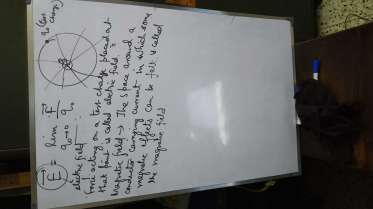 E = lim F / q₀
q₀→0
electric field
Force acting on a test charge placed at
that point is called electric field.
Magnetic field → The space around a
conductor carrying current in which some
magnetic effects can be felt is called
the magnetic field